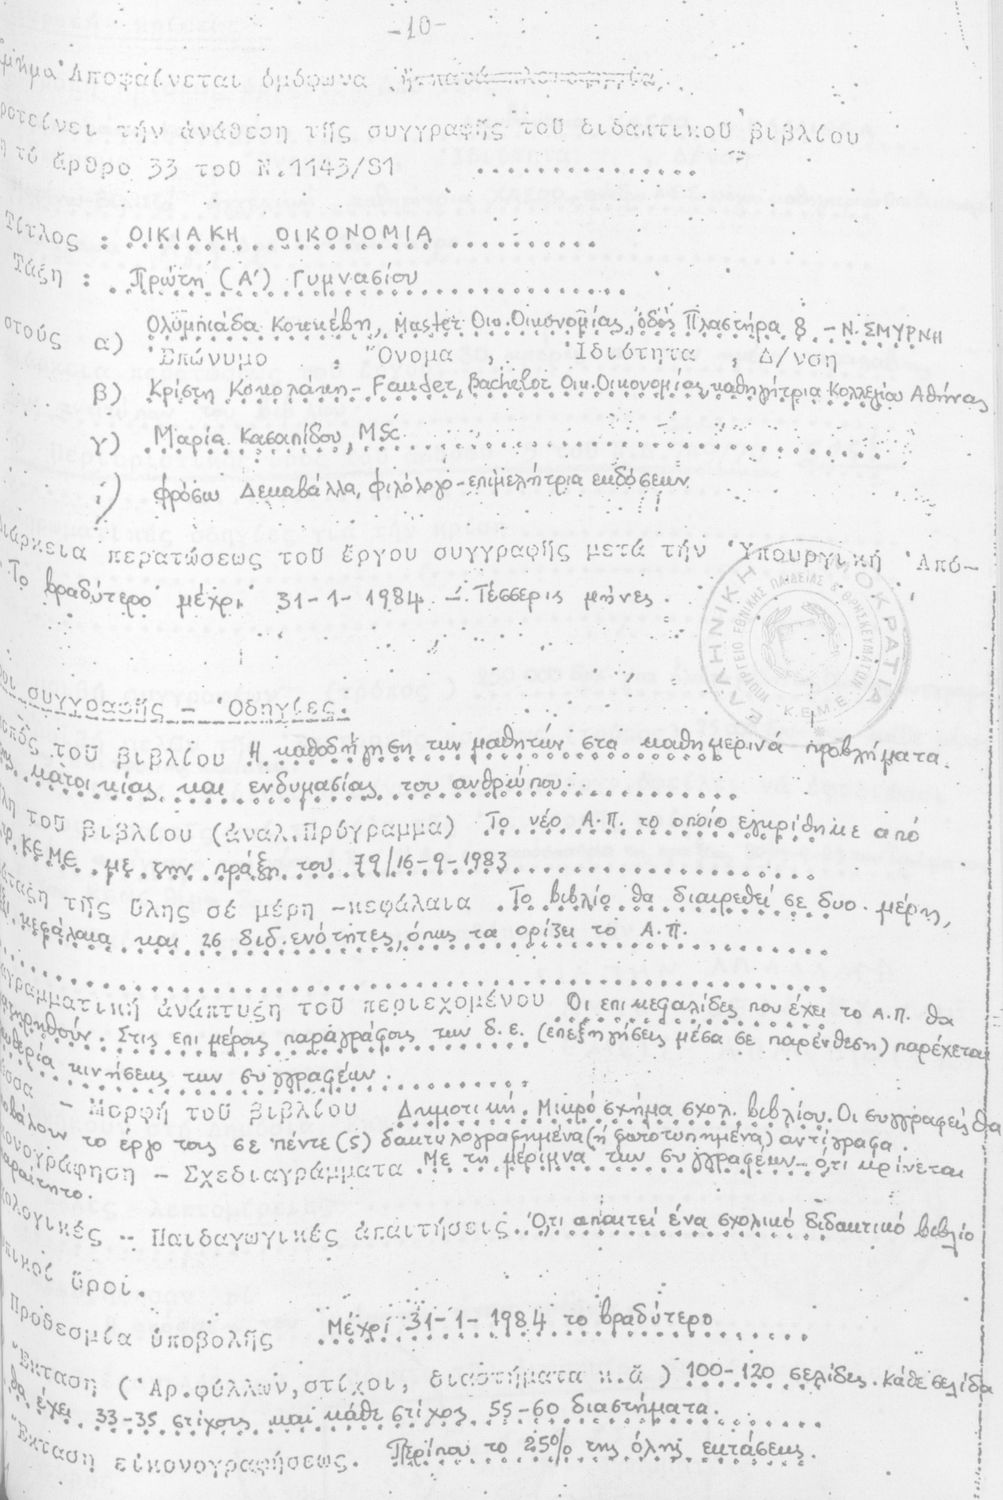 -10-
Ἀποφαίνεται ὁμόφωνα
προτείνει τήν ἀνάθεση τῆς συγγραφῆς τοῦ διδακτικοῦ βιβλίου
τό ἄρθρο 33 τοῦ Ν.1143/81
Τίτλος : ΟΙΚΙΑΚΗ ΟΙΚΟΝΟΜΙΑ
Τάξη : Πρώτη (Α') Γυμνασίου
στούς α) Ολυμπιάδα Κοκκέβη, Master Οικ.Οικονομίας, οδός Πλαστήρα 8 - Ν. ΣΜΥΡΝΗ
Ἐπώνυμο , Ὄνομα , Ἰδιότητα , Δ/νση
β) Κρίστη Κοκολάκη- Bachelor Οικ.Οικονομίας, καθηγήτρια Κολλεγίου Αθήνας
γ) Μαρία Κασαπίδου, MSc
i) Φρόσω Δεκαβάλλα, φιλόλογο-επιμελήτρια εκδόσεων
Διάρκεια περατώσεως τοῦ ἔργου συγγραφῆς μετά τήν Ὑπουργική Ἀπό-
Το βραδύτερο μέχρι 31-1-1984 - Τέσσερις μήνες.
ΕΛΛΗΝΙΚΗ ΔΗΜΟΚΡΑΤΙΑ
ΥΠΟΥΡΓΕΙΟ ΕΘΝΙΚΗΣ ΠΑΙΔΕΙΑΣ & ΘΡΗΣΚΕΥΜΑΤΩΝ
Κ.Ε.Μ.Ε.
συγγραφῆς - Ὁδηγίες.
τοῦ βιβλίου Η καθοδήγηση των μαθητών στα καθημερινά προβλήματα
κατοικίας και ενδυμασίας του ανθρώπου.
τοῦ βιβλίου (ἀναλ.Πρόγραμμα) Το νέο Α.Π. το οποίο εγκρίθηκε από
ΚΕΜΕ με την πράξη του 79/16-9-1983
τῆς ὕλης σέ μέρη -κεφάλαια Το βιβλίο θα διαιρεθεί σε δυο μέρη,
κεφάλαια και 26 διδ.ενότητες, όπως τα ορίζει το Α.Π.
ἀνάπτυξη τοῦ περιεχομένου Οι επικεφαλίδες που έχει το Α.Π. θα
Στις επι μέρους παραγράφους των δ.ε. (επεξηγήσεις μέσα σε παρένθεση) παρέχεται
κινήσεως των συγγραφέων.
- Μορφή τοῦ βιβλίου Δημοτική. Μικρό σχήμα σχολ. βιβλίου. Οι συγγραφείς θα
το έργο τους σε πέντε (5) δακτυλογραφημένα (ή φωτοτυπημένα) αντίγραφα.
- Σχεδιαγράμματα Με τη μέριμνα των συγγραφέων- ό,τι κρίνεται
- Παιδαγωγικές ἀπαιτήσεις Ό,τι απαιτεί ένα σχολικό διδακτικό βιβλίο
ὅροι.
Προθεσμία ὑποβολῆς Μέχρι 31-1-1984 το βραδύτερο
Ἔκταση (Ἀρ.φύλλων,στίχοι, διαστήματα κ.ἄ ) 100-120 σελίδες. Κάθε σελίδα
θα έχει 33-35 στίχους και κάθε στίχος 55-60 διαστήματα.
Ἔκταση εἰκονογραφήσεως. Περίπου το 25% της όλης εκτάσεως.